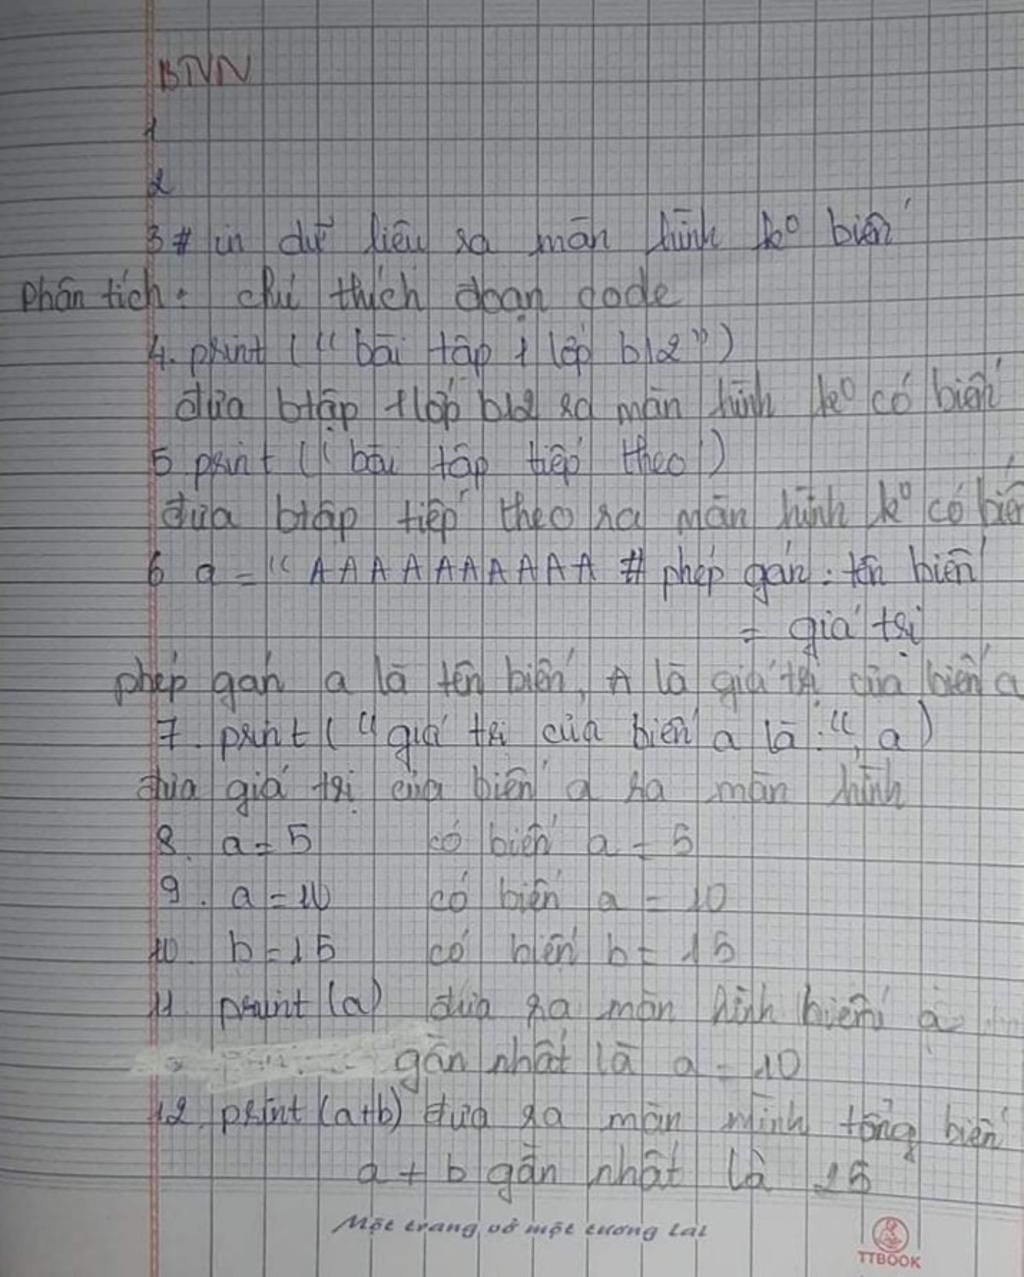 BTVN
1
2
3 # in dữ liệu ra màn hình ko biến
phân tích: chú thích đoạn code
4. print (" bài tập 1 lớp b12 ")
đưa btập 1 lớp b12 ra màn hình ko có biến
5 print (" bài tập tiếp theo )
đưa btập tiếp theo ra màn hình ko có biến
6 a = " AAAAAAAAAA # phép gán: tên biến
= giá trị
phép gán a là tên biến, A là giá trị của biến a
7. print ( " giá trị của biến a là: ", a )
đưa giá trị của biến a ra màn hình
8. a = 5 có biến a = 5
9. a = 10 có biến a = 10
10. b = 15 có biến b = 15
11 print (a) đưa ra màn hình biến a
gần nhất là a = 10
12 print (a+b) đưa ra màn mình tổng biến
a + b gần nhất là 25
Một trang vở một tương lai
TTBOOK